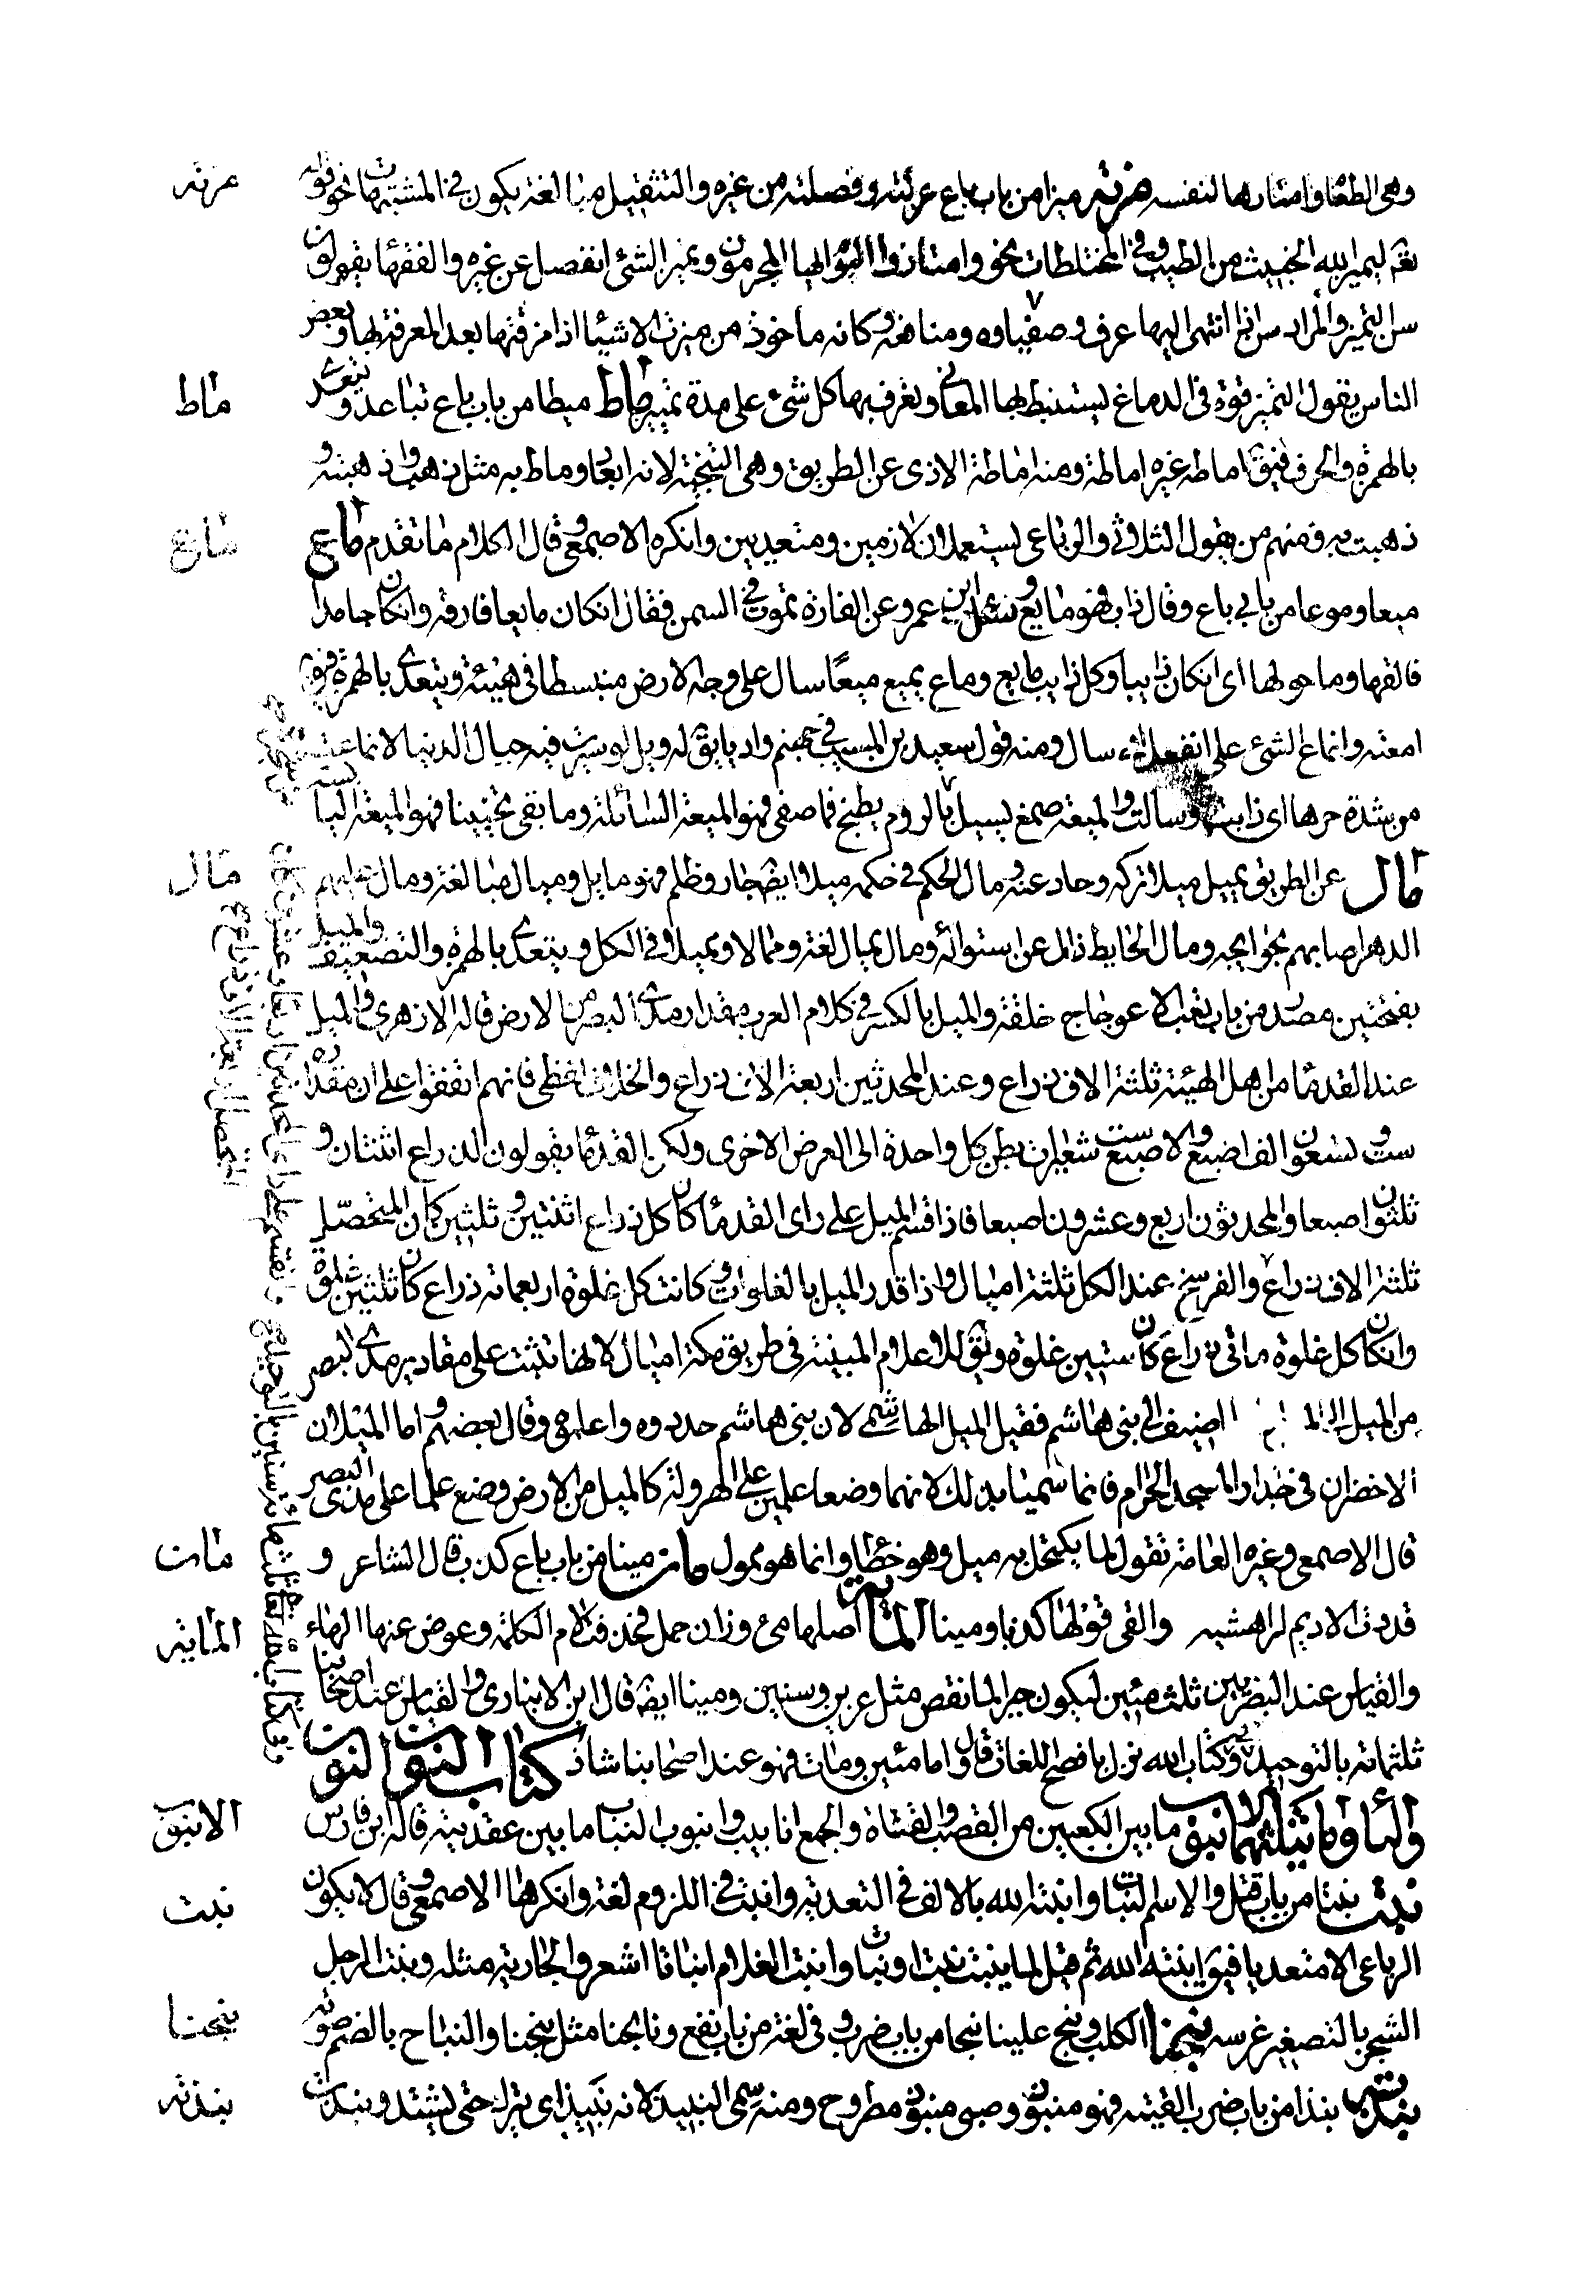 وهى الطعام وامتارها لنفسه مزته ميزا من باب باع عزلته وفصلته من غيره والتثقيل مبالغة يكون فى المشتبهات نحو قوله
تعم ليميز الله الخبيث من الطيب وفى المختلطات نحو وامتازوا اليوم ايها المجرمون وتميز الشئ انفصل عن غيره والفقهاء يقولون
سن التميز والمراد سن اذا انتهى اليها عرف ومنافعه وكانه ماخوذ من ميزت الاشياء اذا فرقتها بعد المعرفة بها وبعض
الناس يقول التميز قوة فى الدماغ يستنبط بها المعانى ويعرف بها كل شئ على حدة ماط ميطا من باب باع تباعد ويتعدى
بالهمزة والحرف فيق اماطه غيره اماطة ومنه اماطة الاذى عن الطريق وهى التنحية لانه ابعاد وماط به مثل اذهبته و
ذهبت به فمنهم من يقول الثلاثى والرباعى يستعملان لازمين ومتعديين وانكره الاصمعى وقال الكلام ما تقدم ماع
ميعا وموعا من بابى باع وقال ذاب فهو مايع وسئل ابن عمر عن الفارة تموت فى السمن فقال ان كان مايعا فارقه وان كان جامدا
فالقها وما حولها اى ان كان ذايبا وكل ذايب مايع وماع يميع ميعا سال على وجه الارض منبسطا فى هيئة ويتعدى بالهمزة فيق
امعته وانماع الشئ على انفعل اى سال ومنه قول سعيد بن المسيب فى جهنم واد يقال له ويل لو سيرت فيه جبال الدنيا لانماعت
من شدة حرها اى ذابت وسالت والميعة صمغ يسيل بالروم يطبخ فما صفى فهو الميعة السائلة وما بقى ثخينا فهو الميعة اليابسة
مال عن الطريق يميل ميلا تركه وحاد عنه ومال الحاكم فى حكمه ميلا ايضا جار وظلم فهو مايل وميال مبالغة ومال عليهم
الدهر اصابهم بجوايحه ومال الحايط زال عن استوائه ومال يمال لغة ومالا وميلا فى الكل ويتعدى بالهمزة والتضعيف والميل
بفتحتين مصدر من باب تعب الاعوجاج خلقة والميل بالكسر فى كلام العرب مقدار مدى البصر من الارض قاله الازهرى والميل
عند القدماء من اهل الهيئة ثلثة الاف ذراع وعند المحدثين اربعة الاف ذراع والخلاف لفظى فانهم اتفقوا على ان مقداره
ست وتسعون الف اصبع والاصبع ست شعيرات بطن كل واحدة الى الاخرى ولكن القدماء يقولون الذراع اثنتان و
ثلثون اصبعا والمحدثون اربع وعشرون اصبعا فاذا قسم الميل على راى القدماء كان كل ذراع اثنتين وثلثين كان المتحصل
ثلثة الاف ذراع والفرسخ عند الكل ثلثة اميال واذا قدر الميل بالغلوات وكانت كل غلوة اربعمائة ذراع كان ثلثين غلوة
وان كان كل غلوة مائتى ذراع كان ستين غلوة ويق للاعلام المبنية فى طريق مكة اميال لانها تثبت على مقادير مدى البصر
من الميل الى الميل اضيف الى بنى هاشم فقيل الميل الهاشمى لان بنى هاشم حددوه واعلموه وقال بعضهم واما الميلان
الاخضران فى جدار المسجد الحرام فانما سميا بذلك لانهما وضعا علمين على الهرولة كالميل من الارض وضع علما على مدى البصر
قال الاصمعى وغيره العامة تقول لما يكتحل به ميل وهو خطأ وانما هو ملمول مان مينا من باب باع كذب قال الشاعر و
قددت الاديم لراهشيه والفى قولها كذبا ومينا المائة اصلها مئ وزان حمل فحذفت لام الكلمة وعوض عنها الهاء
والقياس عند البصريين ثلث مئين ليكون جبرا لما نقص مثل عزين وسنين ومئات ايضا قال ابن الانبارى والقياس عند اصحابنا
ثلثمائة بالتوحيد وكتاب الله نزل بافصح اللغات قال واما مئين ومات فهو عند اصحابنا شاذ كتاب النون النون
والباء وما يثلثهما الانبوب ما بين الكعبين من القصب والقناة والجمع انابيب وانبوب النبات ما بين عقدتيه قاله ابن فارس
نبت نبتا من باب قتل والاسم النبات وانبته الله بالالف فى التعدية وانبت فى اللزوم لغة وانكرها الاصمعى وقال لا يكون
الرباعى الا متعديا فيق انبته الله ثم قيل لما ينبت نبت ونبات وانبت الغلام انباتا اشعر والجارية مثله ونبت الرجل
الشجر بالتضعيف غرسه نبحنا الكلب ونبح علينا نبحا من باب ضرب وفى لغة من باب نفع ونابحنا مثل نبحنا والنباح بالضم صوته
نبذته نبذا من باب ضرب القيته فهو منبوذ وصبى منبوذ مطروح ومنه سمى النبيذ لانه ينبذ اى يترك حتى يشتد ونبذت
مزته
ماط
ماع
مال
مان
المائة
الانبوب
نبت
نبحنا
نبذته